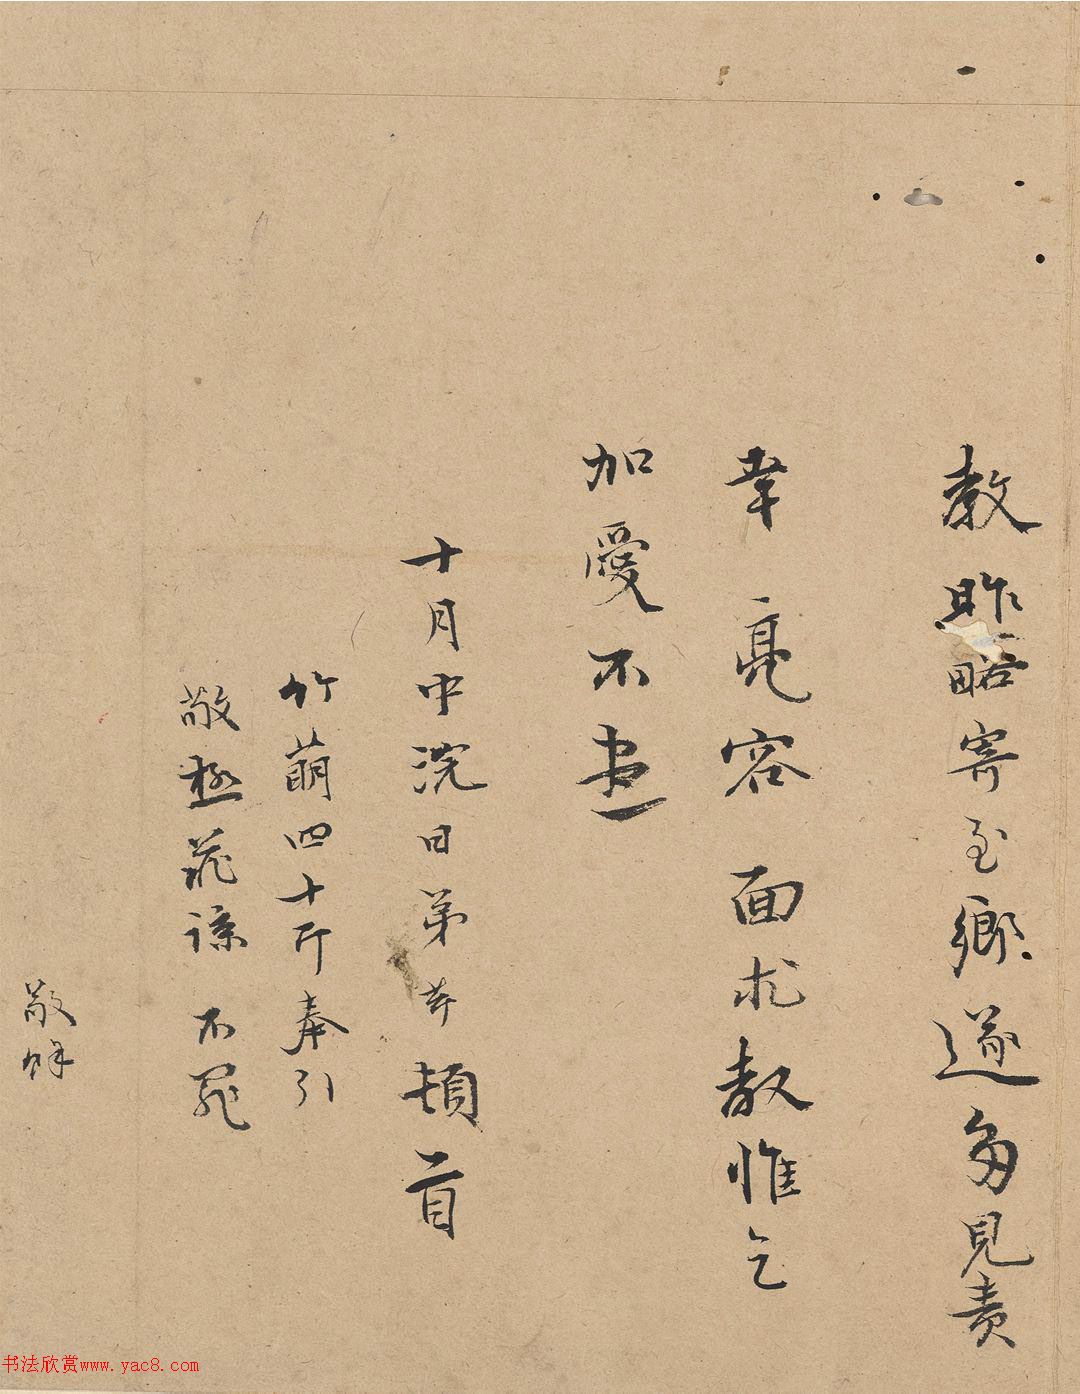 教昨略寄至鄉遂多見責
幸亮容面求教惟乞
加愛不盡
十月中浣日弟 頓首
竹萌四十斤奉引
敬極菲諒不罪
敬
书法欣赏www.yac8.com